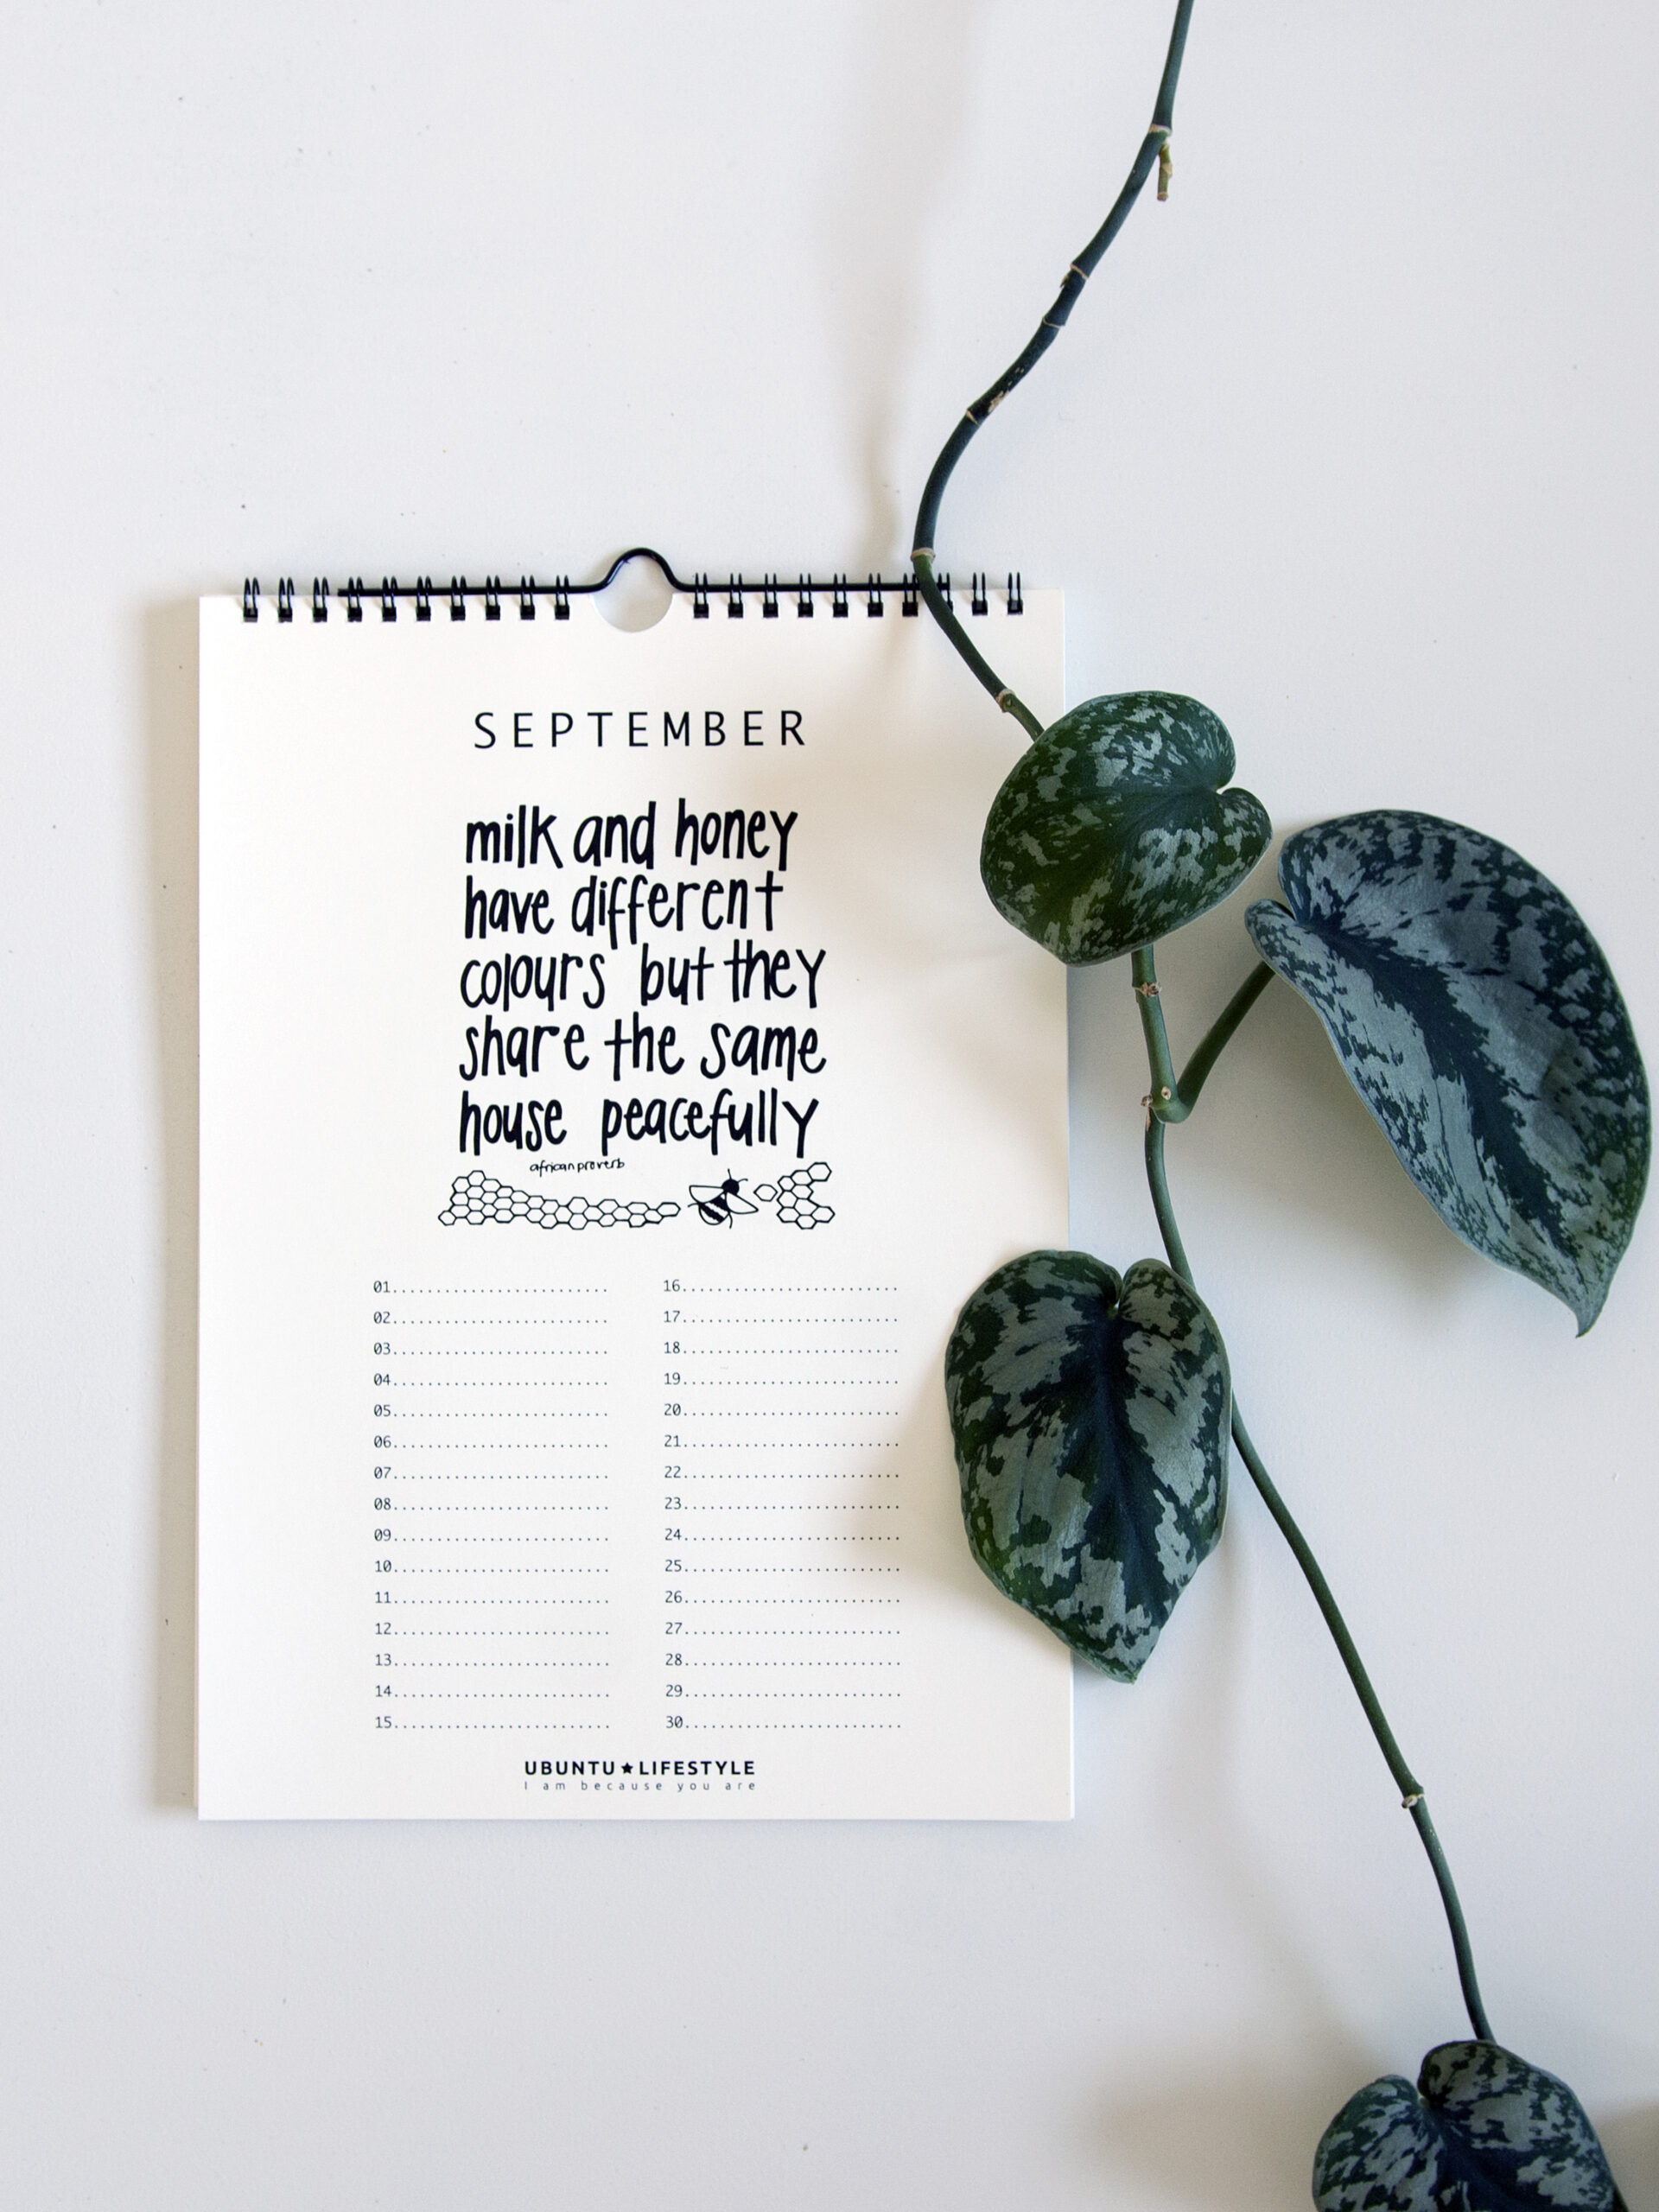 SEPTEMBER
milk and honey
have different
colours but they
share the same
house peacefully
african proverb
01........................
02........................
03........................
04........................
05........................
06........................
07........................
08........................
09........................
10........................
11........................
12........................
13........................
14........................
15........................
16........................
17........................
18........................
19........................
20........................
21........................
22........................
23........................
24........................
25........................
26........................
27........................
28........................
29........................
30........................
UBUNTU★LIFESTYLE
I am because you are